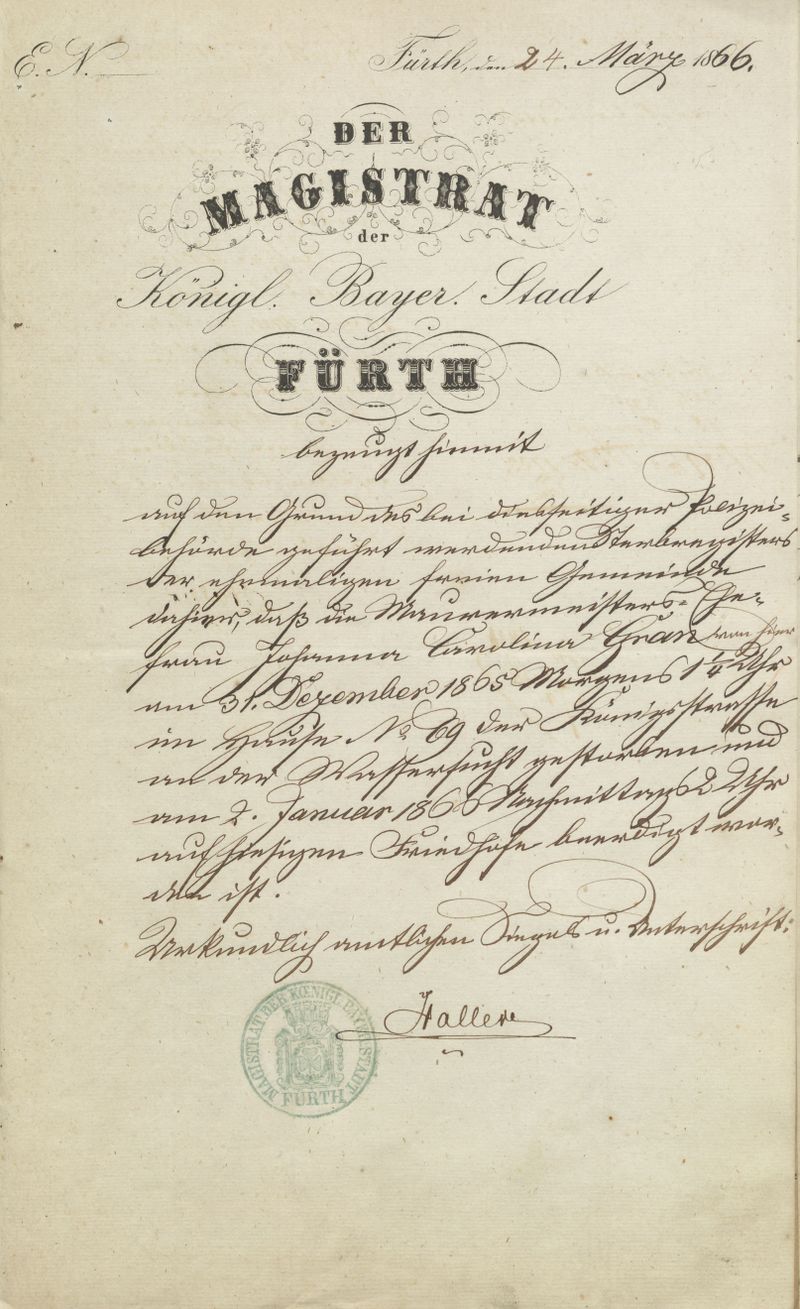 E. N.
Fürth, den 24. März 1866.
DER
MAGISTRAT
der
Königl. Bayer. Stadt
FÜRTH
bezeugt hiemit
auf den Grund des bei diesseitiger Polizei-
behörde geführt werdenden Sterbregisters
der ehemaligen freien Gemeinde
dahier, daß die Maurermeisters-Ehe-
frau Johanna Carolina Gran von hier
am 31. Dezember 1865 Morgens 1 1/4 Uhr
im Hause No 69 der Königsstrasse
an der Wassersucht gestorben und
am 2. Januar 1866 Nachmittags 2 Uhr
auf hiesigen Friedhofe beerdigt wor-
den ist.
Urkundlich amtlichen Siegels u. Unterschrift:
Haller
MAGISTRAT DER KOENIGL. BAYER. STADT
FÜRTH